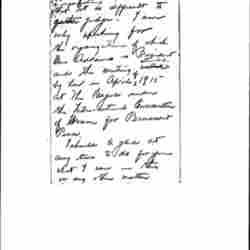 that it is apparent to
judge. I am
only speaking for
the organization of which
Miss Addams is President
and the meeting
by law in April, 1915
at The Hague under
the International Committee
of Women for Permanent
Peace.
I should be glad at
any time to do for you
what I can in this
or any other matter